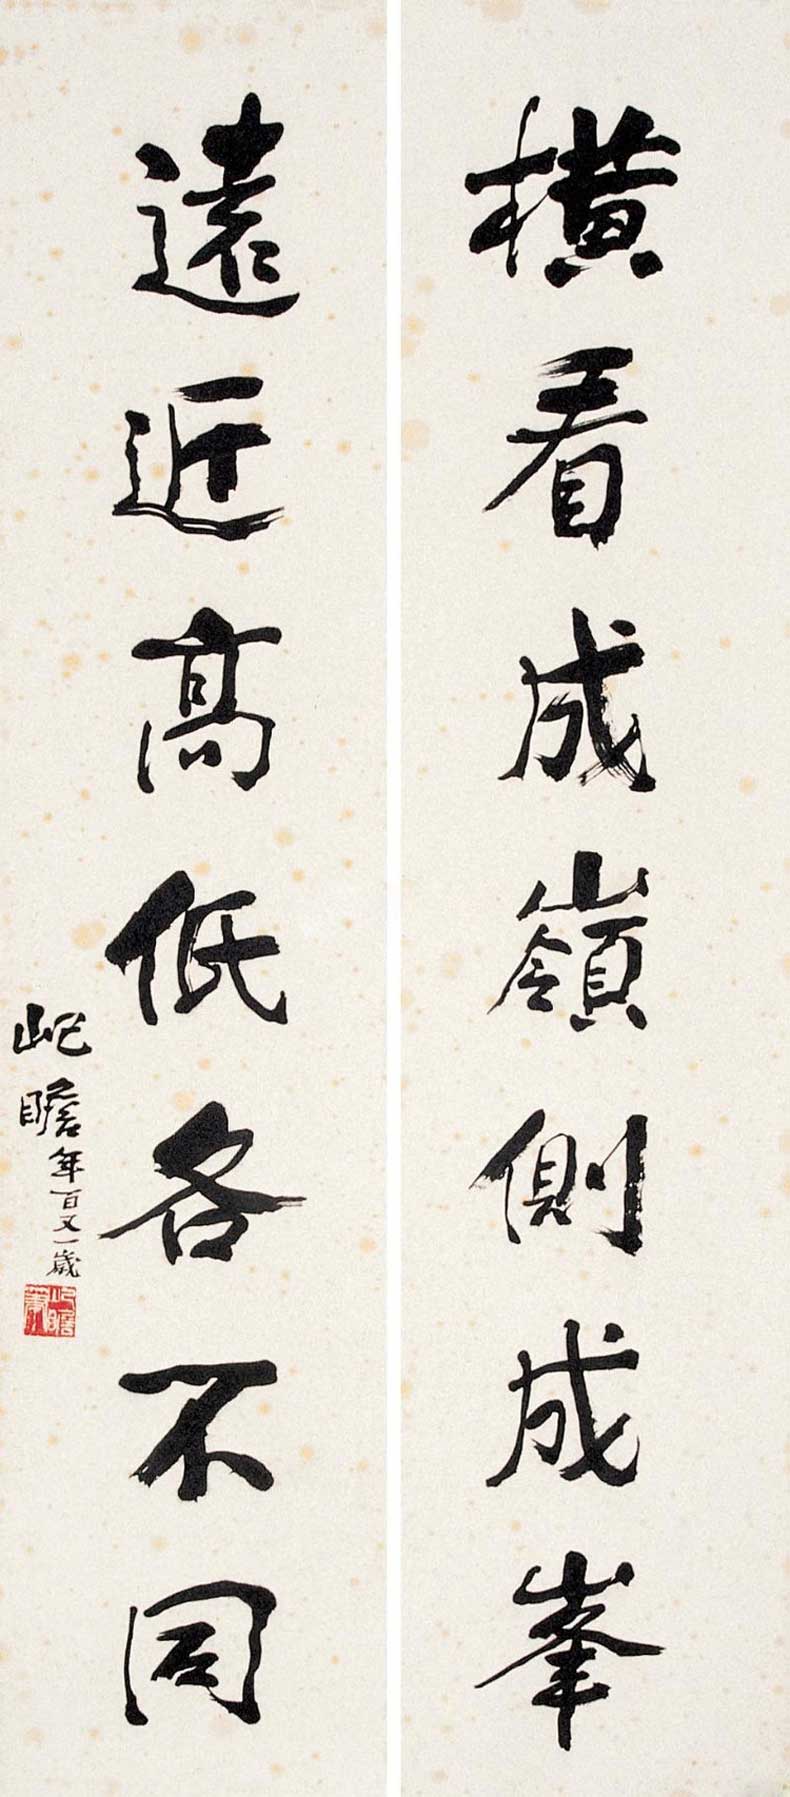 橫看成嶺側成峯
遠近高低各不同
屺瞻年百又一歲
屺瞻